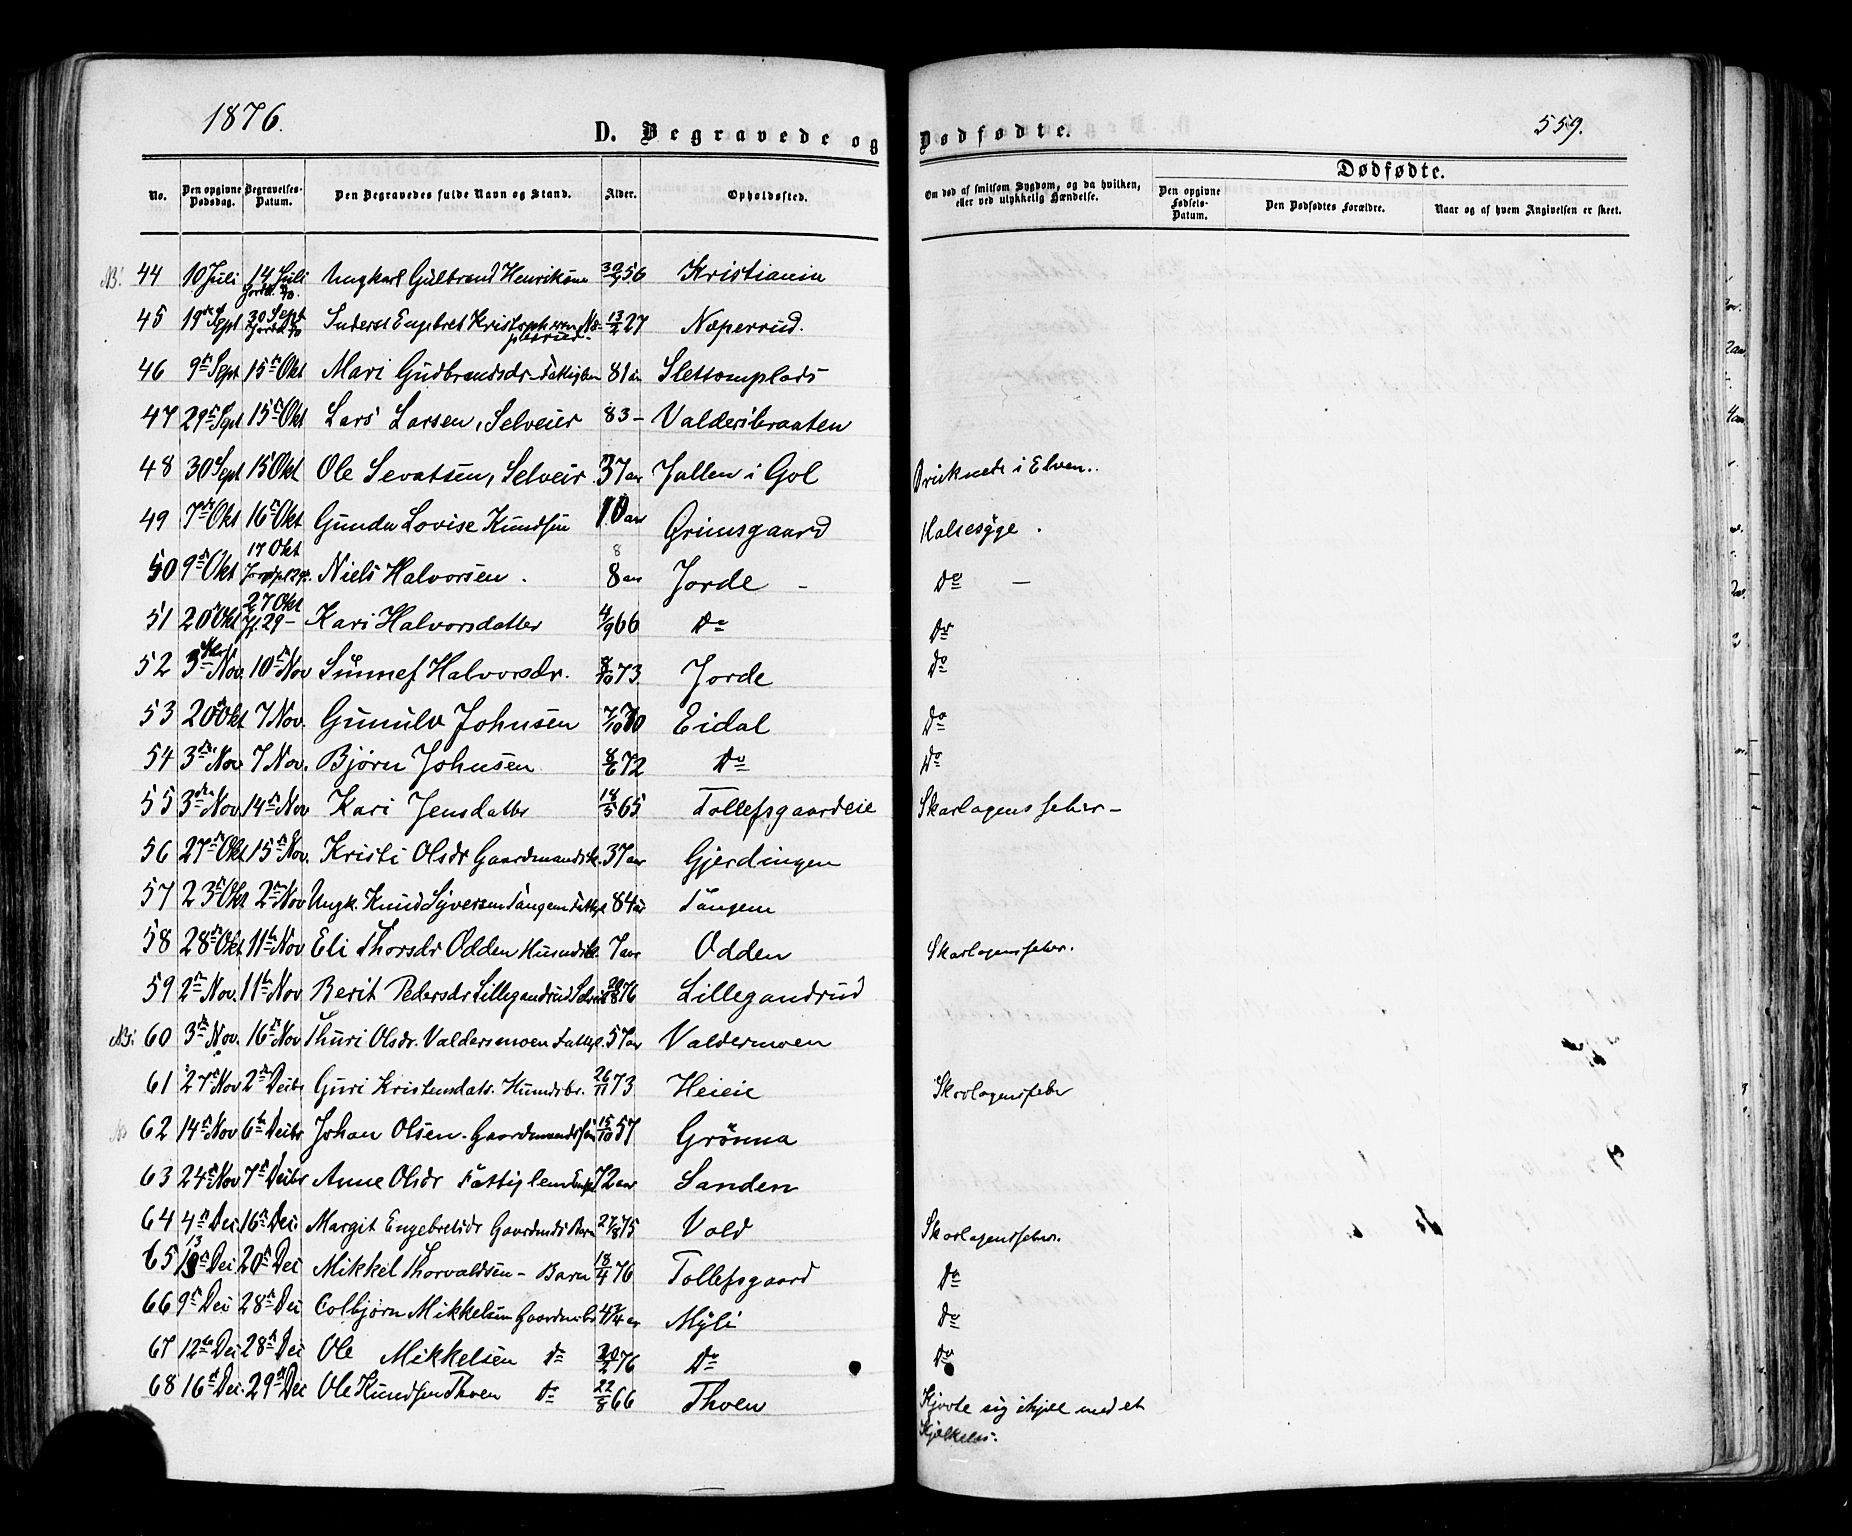 1876.
D. Begravede og Dødfødte.
559.
No. Den opgivne Dødsdag. Begravelses-Datum. Den Begravedes fulde Navn og Stand. Alder. Opholdssted. Om død af smitsom Sygdom, og da hvilken, eller ved ulykkelig Hændelse. Dødfødte. Den opgivne Fødsels-Datum. Den Dødfødtes Forældre. Naar og af hvem Angivelsen er skeet.
44 10 Juli 14 Juli Ungkarl Gulbrand Henriksen 56 Kristiania
45 19de Sept 30 Sept Engebret Kristophersen 13/2 27 Næperrud.
46 9de Sept 15de Okt Mari Gudbrandsdr Fattiglem 81 aar Slettomplads
47 29de Sept 15de Okt Lars Larsen, Selveier 83 – Valdersbraaten
48 30 Sept 15 Okt Ole Sevatsen, Selveier 37 aar Jallen i Gol Druknede i Elven.
49 7de Okt 16de Okt Gunda Lovise Knudsen 10 aar Grimsgaard Halsesyge.
50 9de Okt 17 Okt Niels Halvorsen. 8 aar Jorde – Do –
51 20de Okt 27 Okt Jf. 29 – Kari Halvorsdatter 4/9 66 Do Do
52 3de Nov 10de Nov Sünnef Halvorsdr. 8/10 73 Jorde Do
53 20de Okt 7 Nov. Gunulv Johnsen 7/10 70 Eidal Do
54 3de Nov 7 Nov. Bjørn Johnsen 8/6 72 Do Do
55 3de Nov 14de Nov Kari Jensdatter 18/5 65 Tollefsgaardeie Skarlagensfeber –
56 27de Okt 15de Nov. Kristi Olsdr Gaardmandsk. 37 aar Gjerdingen
57 23de Okt 2de Nov Ungk. Knud Syversen Tangen Fattigl 84 aar Tangen
58 28de Okt 11te Nov Eli Thorsdr Odden Husmdsb. 7 aar Odden Skarlagensfeber.
59 2de Nov. 11te Nov Berit Pedersdr Lillegandrud 76 Lillegandrud
NB: 60 3de Nov. 16de Nov Thuri Olsdr. Valdersmoen Fattigl. 57 aar Valdermoen
61 27de Nov 2de Decbr Guri Kristensdatr. Husmdsbr. 26/11 73 Heieie Skarlagensfeber
62 14de Nov 6te Decbr Johan Olsen. Gaardmandssøn 15/10 57 Grönna
63 24de Nov 7de Decbr Anne Olsdr Fattiglem Enke 72 aar Sanden
64 4de Dec 16de Dec. Margit Engebretsdr Gaardmds Barn 27/8 75 Vold Skarlagensfeber.
65 13 Dec. 20de Dec Mikkel Thorvaldsen – Barn 18/4 76 Tollefsgaard Do
66 9de Dec 28de Dec Colbjørn Mikkelsen Gaardmbr 4 3/4 aar Myli Do
67 12te Dec 28de Dec Ole Mikkelsen Do 20/2 76 Do Do
68 16de Dec. 29de Dec Ole Knudsen Thoen Do 22/8 66 Thoen Kjørte sig ihjel med et
Kjelkelæs.